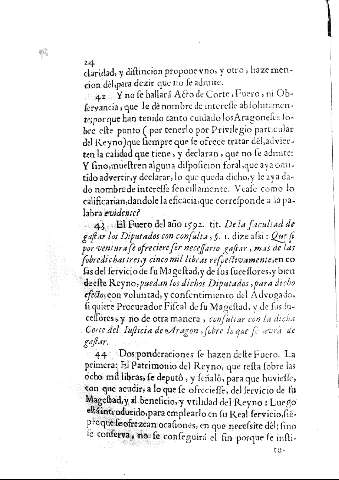 24
claridad, y distincion propone vno, y otro, haze men-
cion dèl, para dezir que no se admite.
42 Y no se hallarà Acto de Corte, Fuero, ni Ob-
servancia, que le dè nombre de interesse absolutamen-
te; porque han tenido tanto cuidado los Aragoneses so-
bre este punto (por tenerlo por Privilegio particular
del Reyno) que siempre que se ofrece tratar dèl, advier-
ten la calidad que tiene, y declaran, que no se admite:
Y sino, muestren alguna disposicion foral, que aya omi-
tido advertir, y declarar, lo que queda dicho, y le aya da-
do nombre de interesse sencillamente. Vease como lo
calificarian, dandole la eficacia, que corresponde a la pa-
labra evidente?
43 El Fuero del año 1592. tit. De la facultad de
gastar los Diputados con consulta, §. 1. dize assi: Que si
por ventura se ofreciere ser necessario gastar, mas de las
sobredichas tres, y cinco mil libras respectivamente, en co
sas del servicio de su Magestad, y de sus sucessores, y bien
deste Reyno, puedan los dichos Diputados, para dicho
efecto, con voluntad, y consentimiento del Advogado,
si quiere Procurador Fiscal de su Magestad, y de sus su-
cessores, y no de otra manera, consultar con la dicha
Corte del Iusticia de Aragon, sobre lo que se avrà de
gastar.
44 Dos ponderaciones se hazen deste Fuero. La
primera: El Patrimonio del Reyno, que resta sobre las
ocho mil libras, se deputò, y señalò, para que huviesse,
con que acudir, a lo que se ofreciesse, del servicio de su
Magestad, y al beneficio, y vtilidad del Reyno: Luego
està introducido, para emplearlo en su Real servicio, siẽ-
pre que se ofrezcan ocasiones, en que necessite dèl; sino
se conserva, no se conseguirà el fin porque se insti-
tu-